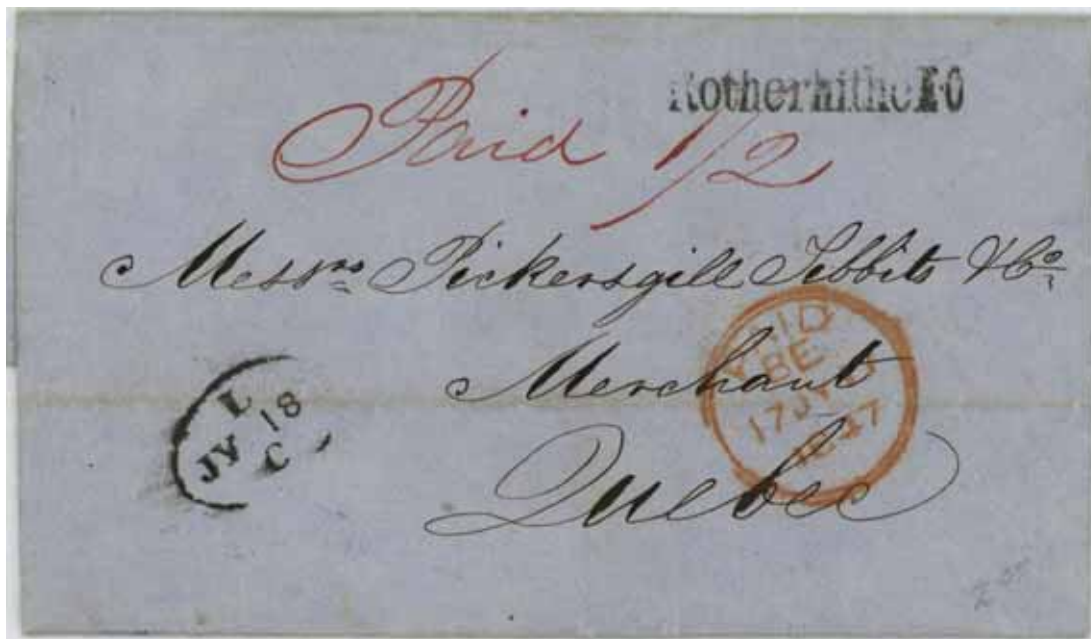 Rotherhithe P.O
Paid 1/2
Messrs Pickersgill Tibbits & Co.
Merchant
Quebec
L
JY 18
C
PAID
BE
17 JY
1847